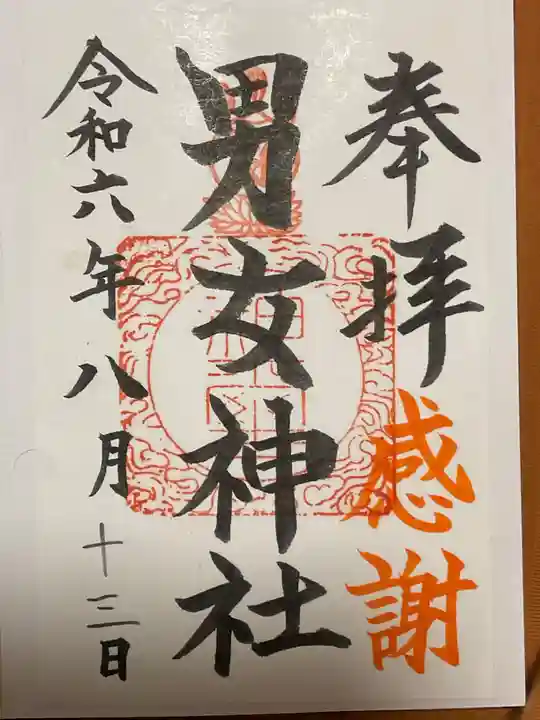 奉拝
感謝
男女神社
令和六年八月十三日